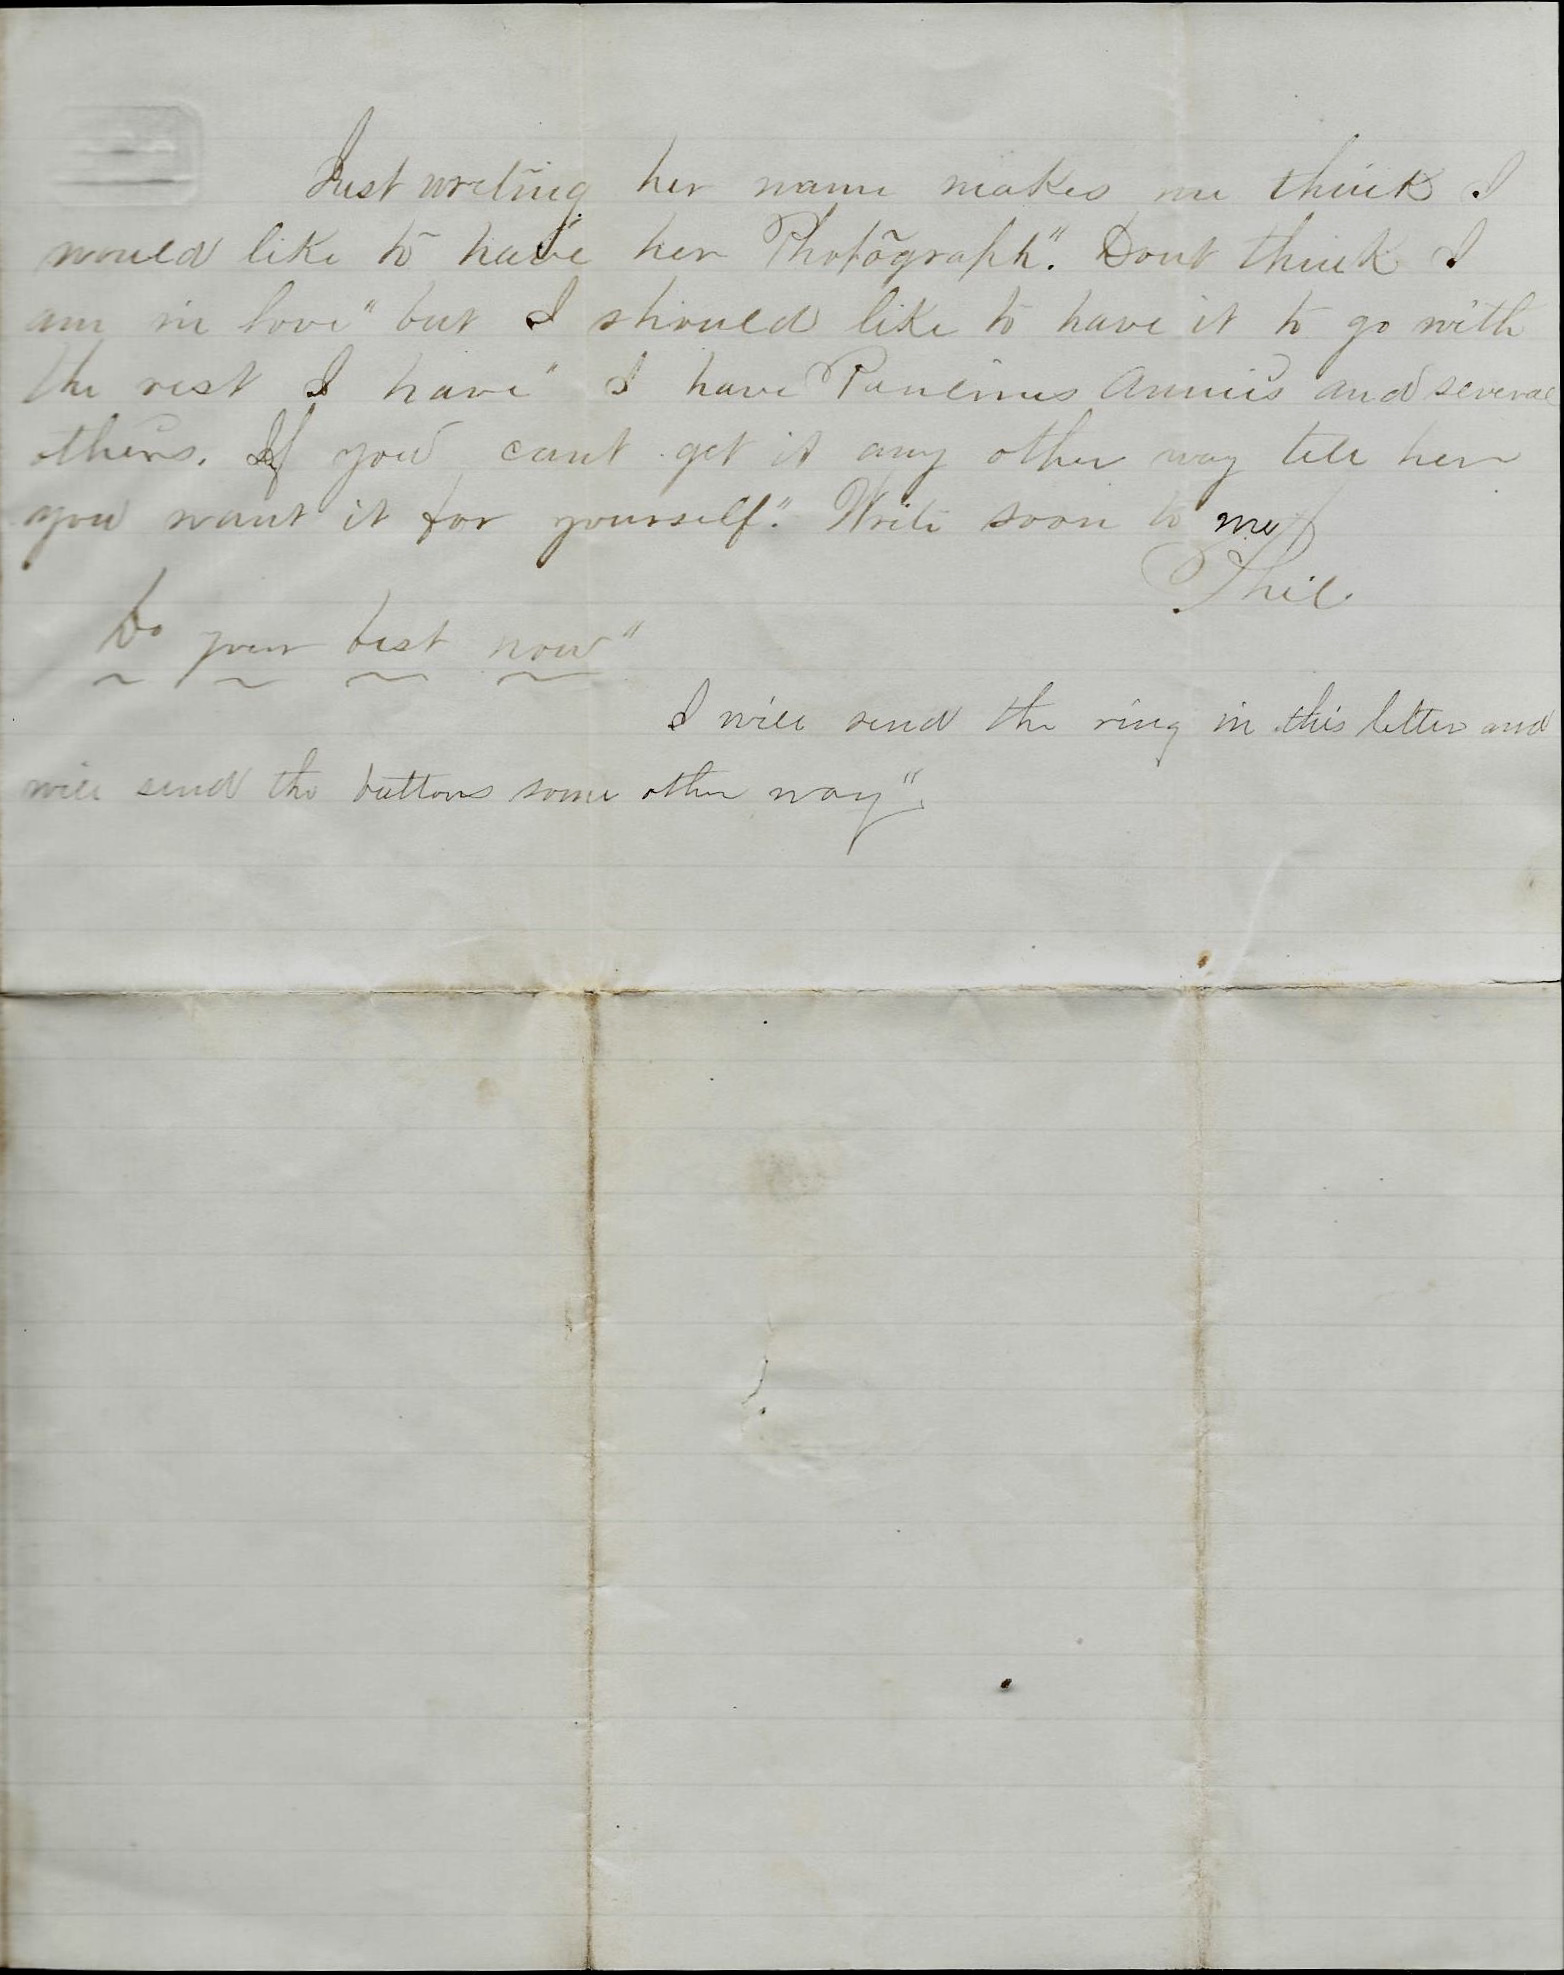 Just writing her name makes me think I
would like to have her Photograph". Dont think I
am in love" but I should like to have it to go with
the rest I have" I have Paulines Annies and several
others. If you cant get it any other way tell her
you want it for yourself." Write soon to me
Phil
Do your best now"
I will send the ring in this letter and
will send the buttons some other way".